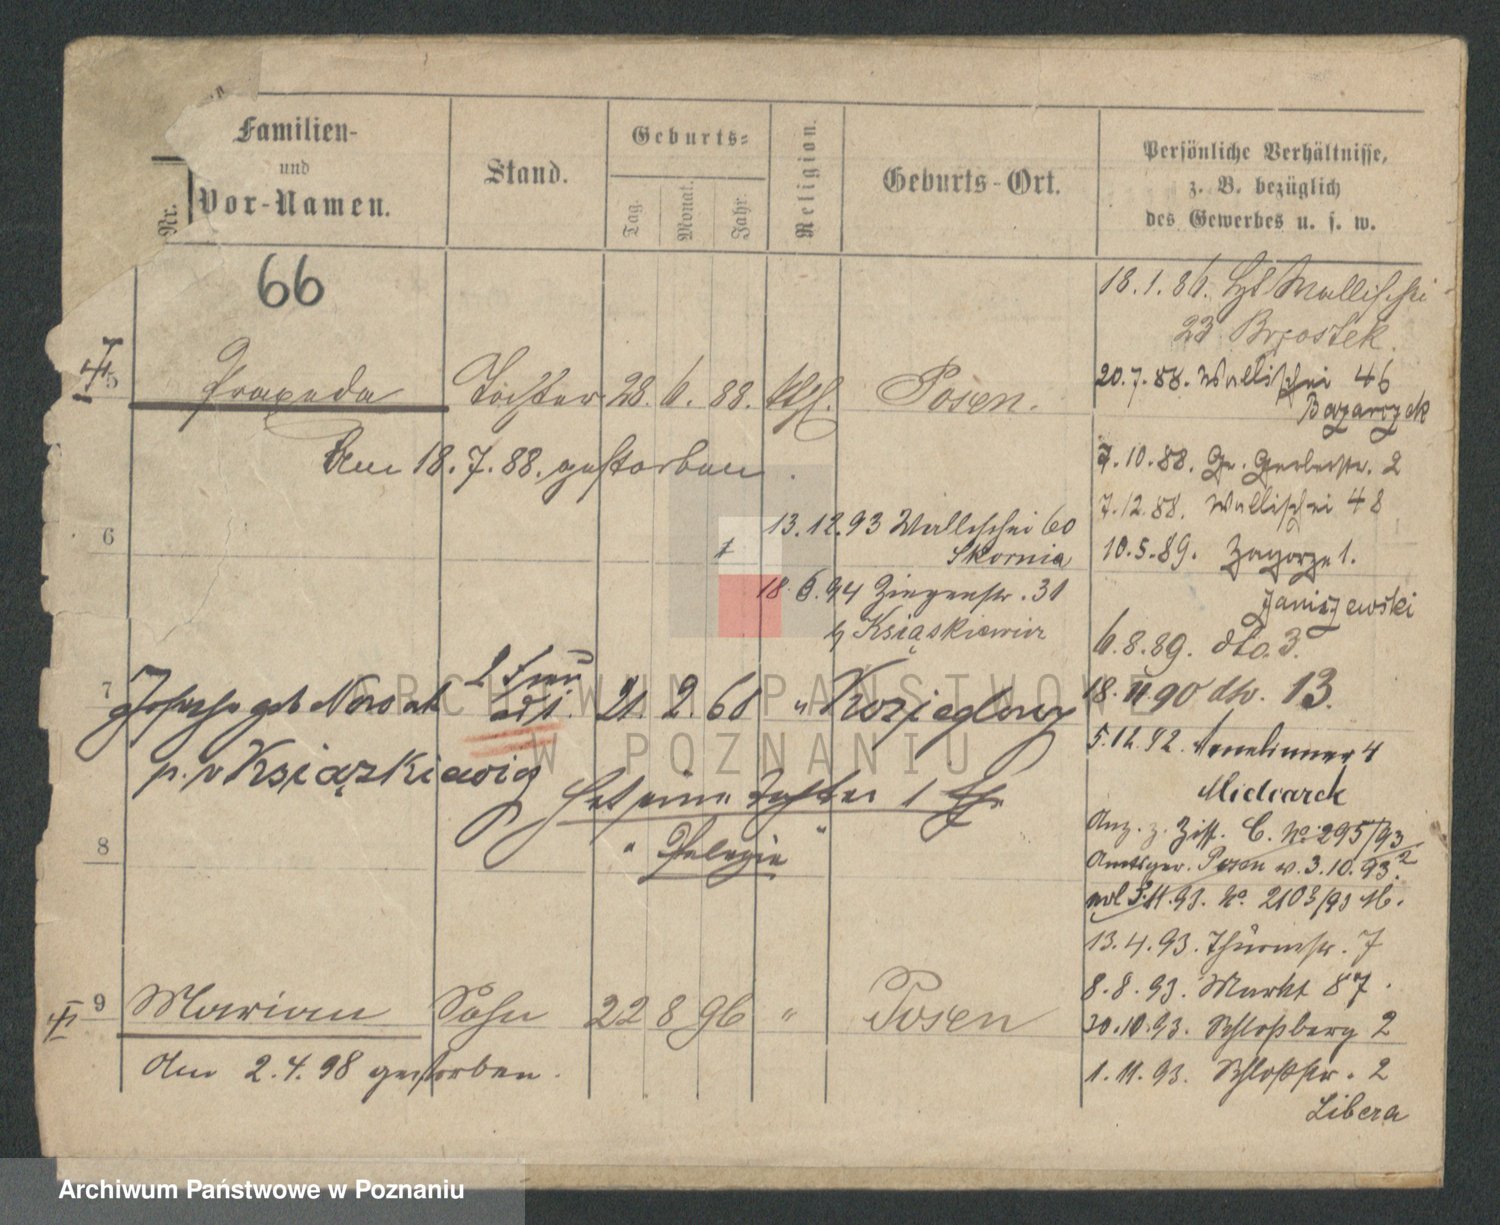 Nr.
Familien-
und
Vor-Namen.
Stand.
Geburts-
Tag.
Monat.
Jahr.
Religion.
Geburts-Ort.
Persönliche Verhältnisse,
z. B. bezüglich
des Gewerbes u. s. w.
66
5 Praxeda Tochter 28. 6. 88. kth. Posen.
Am 18.7.88. gestorben.
6
13.12.93 Wallischei 60
Skornia
18.6.94 Ziegenstr. 31
b/ Książkiewicz
7 Josepha geb Nowak 2 Frau 21. 2. 68 " Kozieglowy
p. v Książkiewicz
Hat eine Tochter
8
" Pelagia "
9 Marian Sohn 22 8 96 " Posen
Am 2.4.98 gestorben.
18.1.86. Wallischei
23 Brzostek.
20.7.88. Wallischei 46
Bazarczek
7.10.88. Gr. Gerberstr. 2
7.12.88. Wallischei 48
10.5.89. Zagorze 1.
Janiszewski
6.8.89. dto. 3.
18.11.90 dto. 13.
5.12.92. 4
Anz. z. Ziff. C. No. 295/93
Amtsger. Posen v. 3.10.93.
No. 2103/93
13.4.93. Thurmstr. 7
8.8.93. Markt 87.
30.10.93. Schloßberg 2
1.11.93. Schloßstr. 2
Libera
ARCHIWUM PAŃSTWOWE
W POZNANIU
Archiwum Państwowe w Poznaniu